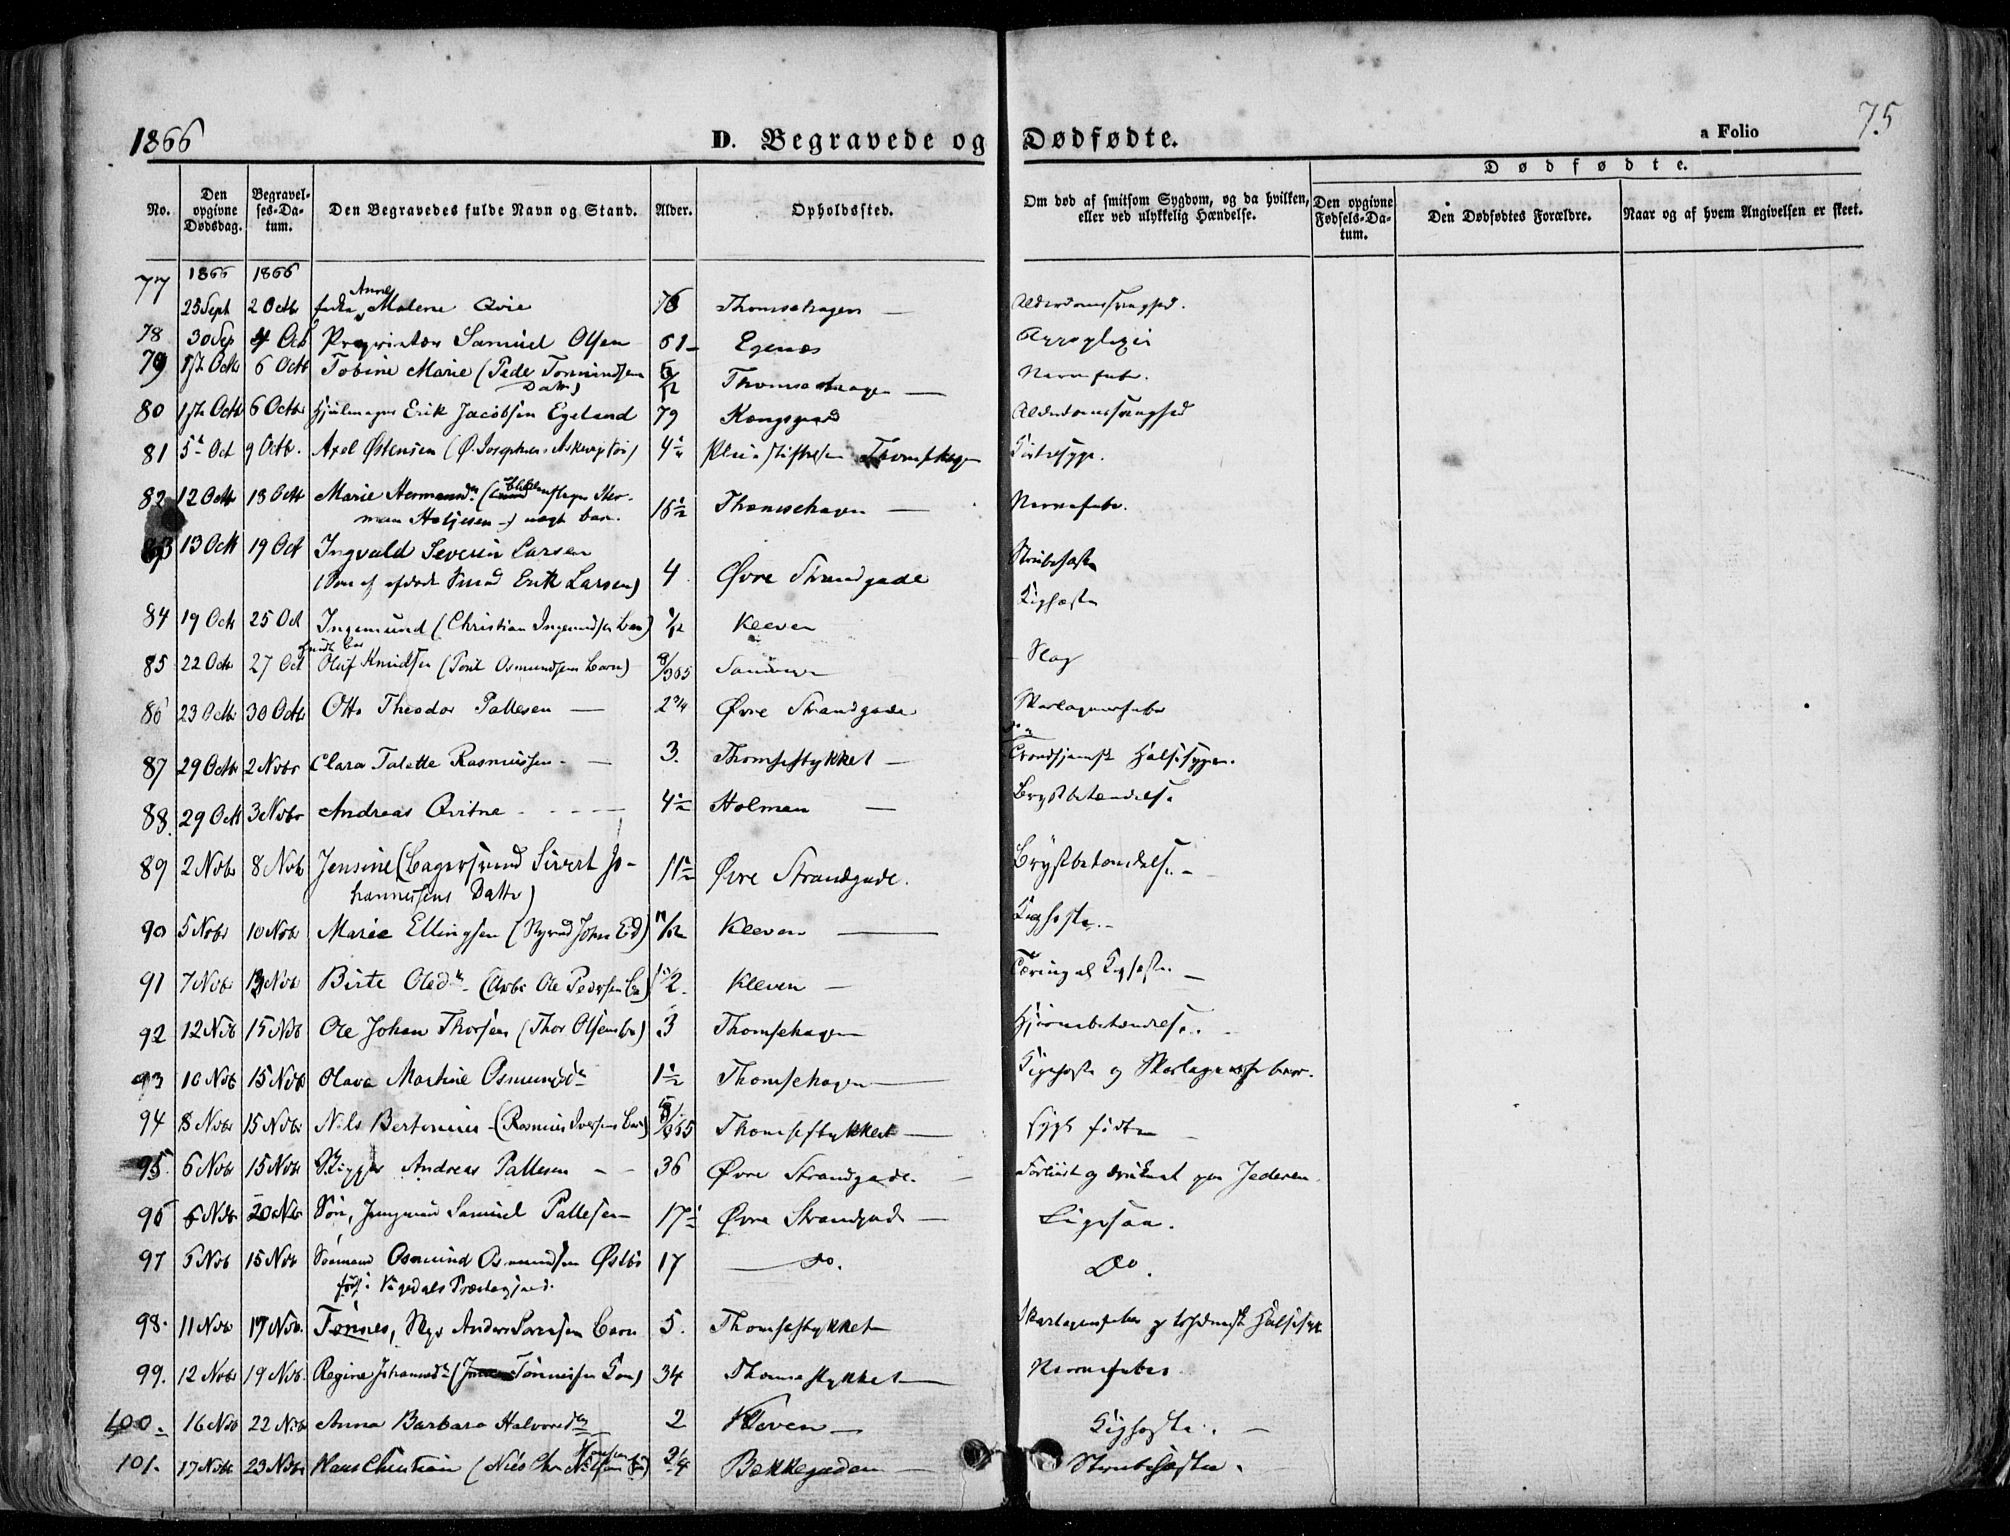 1866
D. Begravede og Dødfødte.
a Folio 75
Dødfødte.
No. Den opgivne Dødsdag. Begravelses-Datum. Den Begravedes fulde Navn og Stand. Alder. Opholdssted. Om død af smitsom Sygdom, og da hvilken, eller ved ulykkelig Hændelse. Den opgivne Fødsels-Datum. Den Dødfødtes Forældre. Naar og af hvem Angivelsen er skeet.
1866 1866
77 Anne
25 Sept 2 Octb Malene Qvie 76 Thomsehagen — Alderdomssvaghed.
78 30 Sep 4 Oct Proprietær Samuel Olsen 61 Egenæs Apoplexi
79 1ste Octb 6 Octb Tobine Marie (Peder Tønnesen Datt) Thomsehagen — Nervefeber.
80 1ste Octb 6 Octbr Hjulmager Erik Jacobsen Egeland 79 Kongsgaard Alderdomssvaghed
81 5 Oct 9 Octb. Axel Østensen 4½ Pleiestiftelsen Thomsehagen Kirtelsyge.
82 12 Octb 18 Octb Marie Hermansdr (Blikkenslager Herman Haljesen) uægt barn. 16½ Thomsehagen — Nervefeber.
83 13 Octb 19 Oct Ingvald Severin Larsen
(Søn af afdøde Smed Erik Larsen) 4 Øvre Strandgade Strubehoste
84 19 Octb 25 Oct Ingemund (Christian Ingemundsen barn) Kleven Kighoste
85 22 Octb 27 Oct Oluf Knudsen (Osmundsens barn) 8/365 Sandvigen Slag
86 23 Octb 30 Octb Otto Theodor Pallesen — 2¾ Øvre Strandgade Skarlagensfeber
87 29 Octb 2 Nobr Clara Talette Rasmussen — 3. Thomsestykket — Trondhjemsk Halssyge.
88. 29 Octb 3 Nobr Andreas Qvitne — 4½ Holmen — Brystbetændelse
89 2 Nobr 8 Nob Jensine (Bager Sivert Johannessens Datter) 11½ Øvre Strandgade. Brystbetændelse. —
90 5 Nobr 10 Nobr Marie Ellingsen 11/12 Kleven — Kighoste. —
91 7 Nob 13 Nob Birte Olsdr (Arb. Ole Pedersen) 1½ Kleven — Tæring af Kighoste. —
92 12 Nob 15 Nob Ole Johan Thorsen (Thor Olsen) 3 Thomsehagen Hjernebetændelse.
93 10 Nob 15 Nob Olava Martine Osmundsdr 1½ Thomsehagen — Kighoste og Skarlagensfeber.
94 8 Nobr 15 Nobr Nils Bertinius (Rasmus Iversens barn) Thomsestykket — sygt født —
95. 6 Nobr 15 Nob Skipper Andreas Pallesen — 36 Øvre Strandgade. — Forliist og druknet paa Jederen.
96 6 Nob 20 Nob Søn, Jungmand Samuel Pallesen 17½ Øvre Strandgade — Ligesaa.
97 6 Nob 15 Nob Sømand Osmund Osmundsen Østbø
født i Præstegjeld. 17 — do. Do.
98. 11 Nob 17 Nob. Tønnes, Anders Sørensen barn 5. Thomsestykket Skarlagensfeber og trhjemsk Halssyge
99. 12 Nobr 19 Nob. Regine Johannesdr (Tønnesen) 34 Thomsestykket — Nervefeber
100. 16 Nob 22 Nob Anna Barbara Halvorsdr 2 Kleven — Kighoste. —
101. 17 Nob 23 Nobr Hans Christian (Niels Chr Hansen) 2¼ Bækkegaden — Strubehoste.